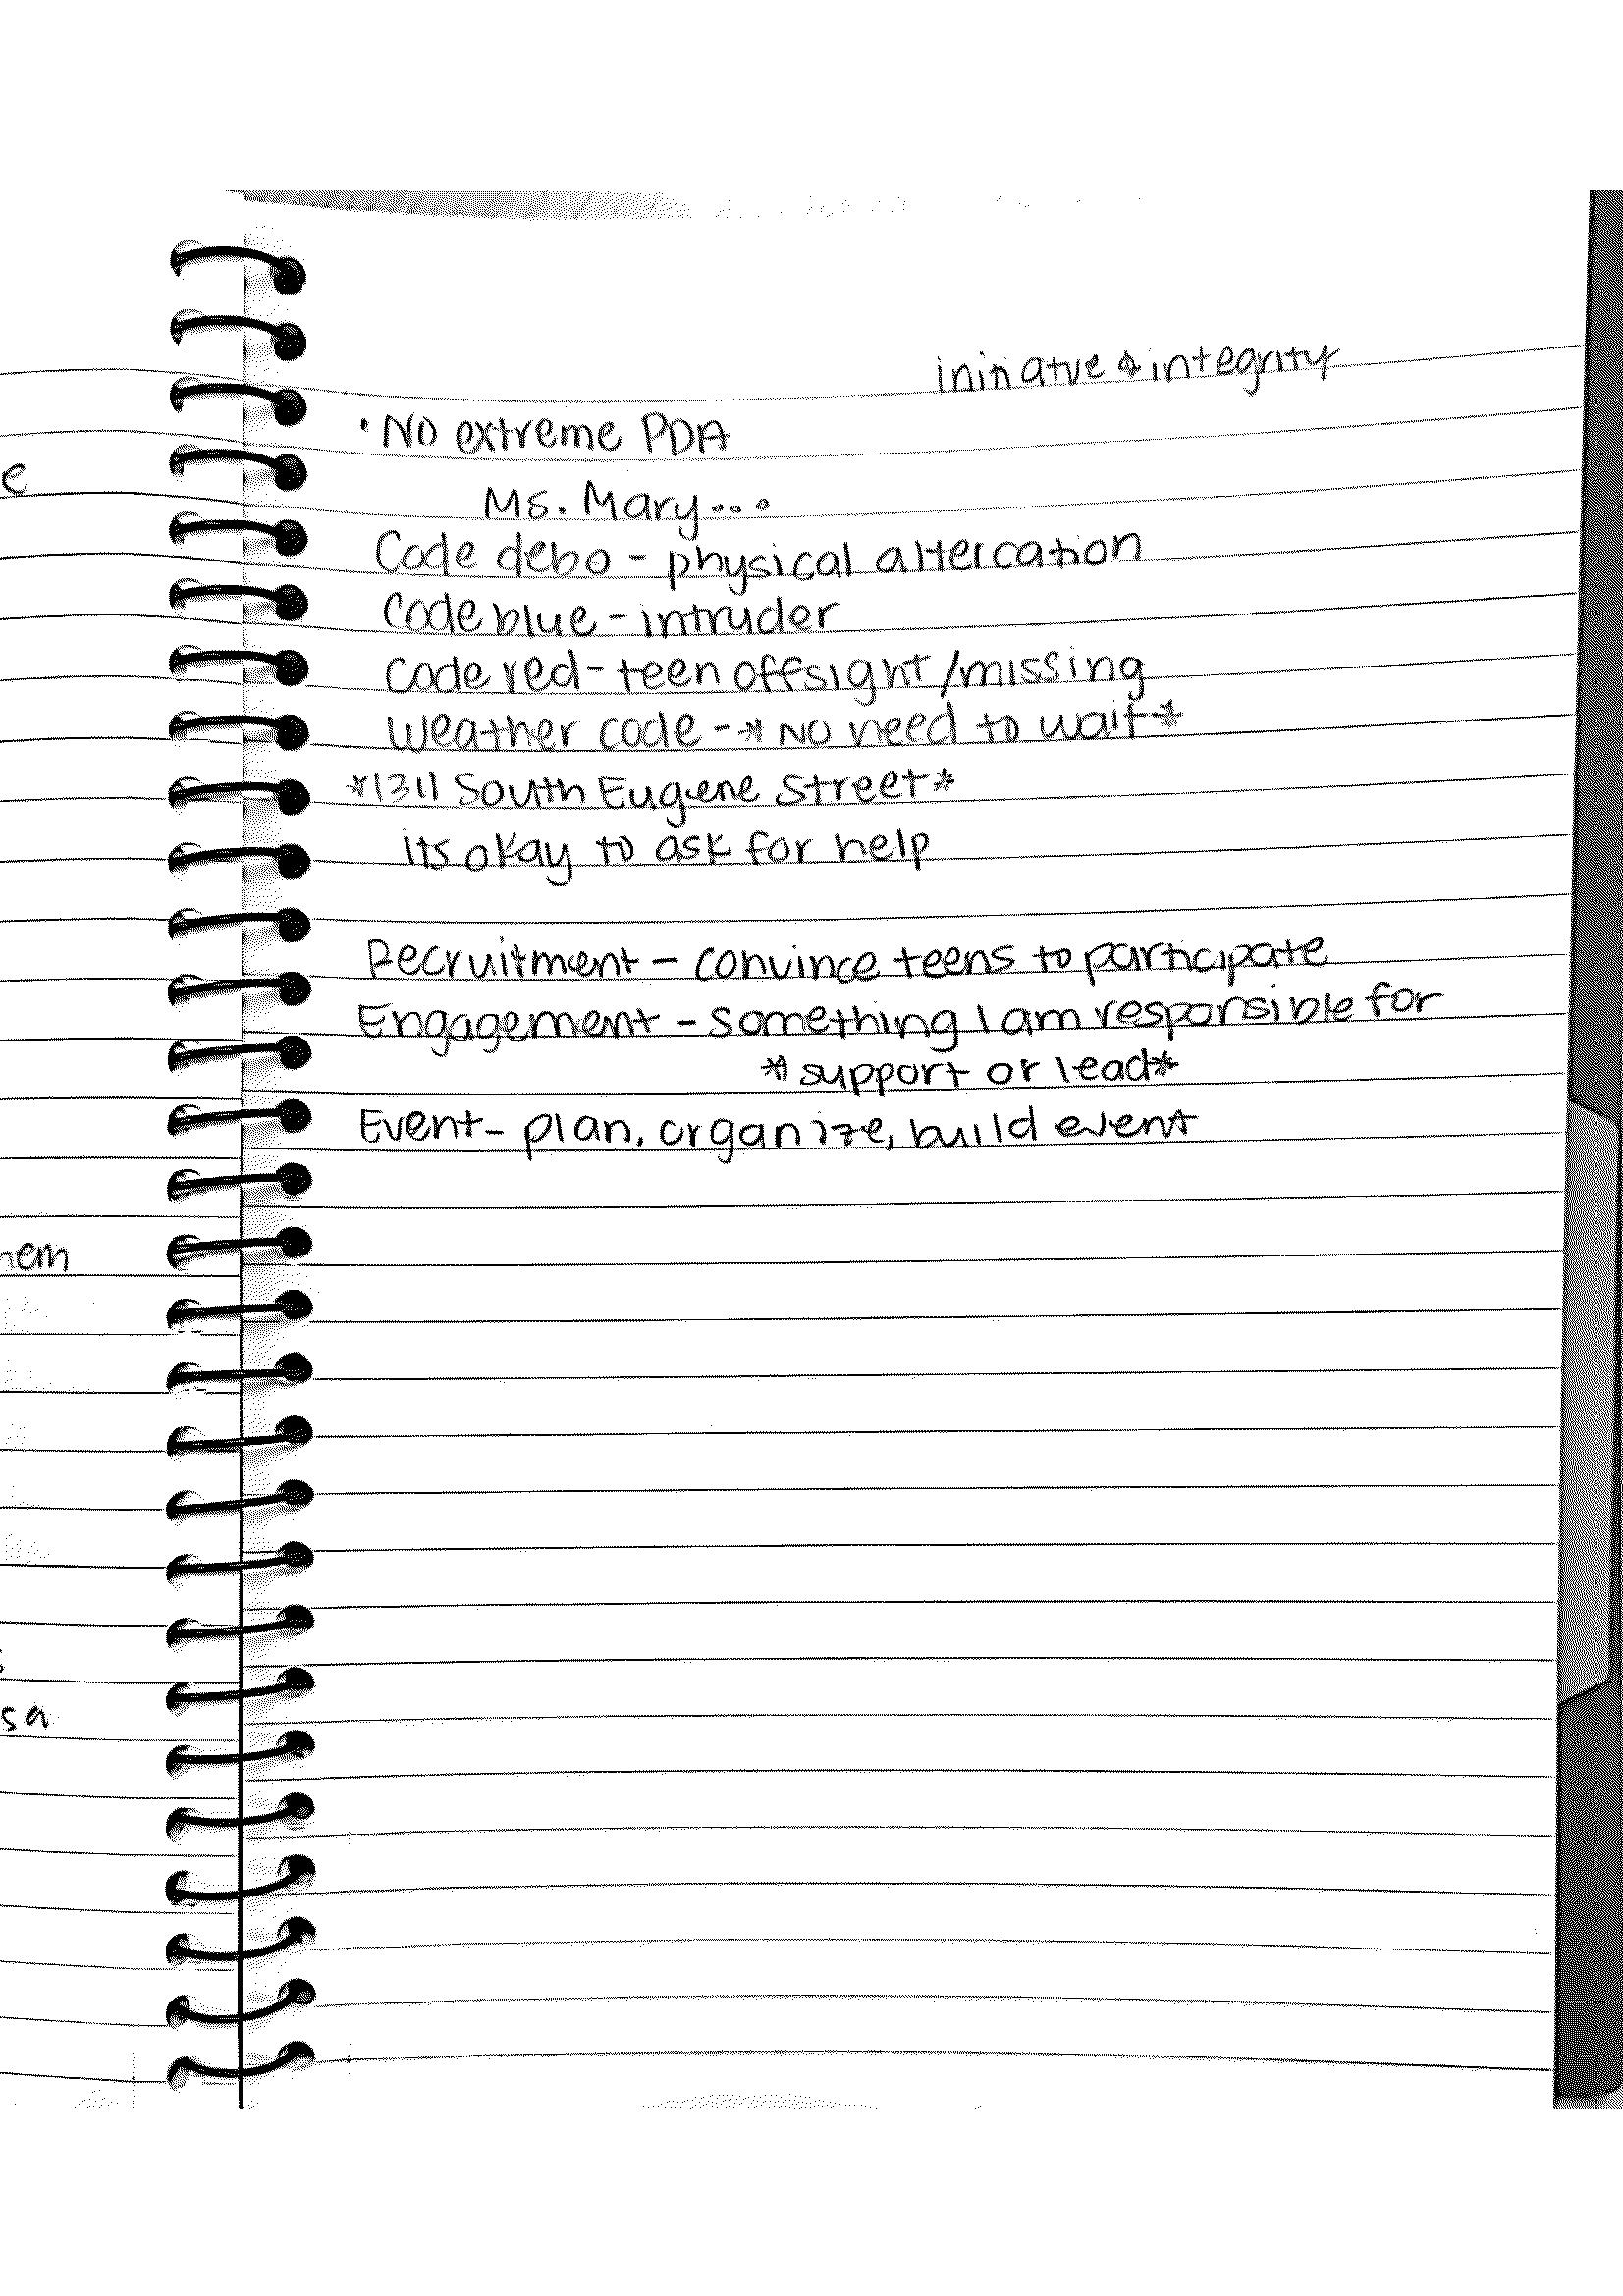 initiative & integrity
· No extreme PDA
Ms. Mary...
Code debo - physical altercation
Code blue - intruder
Code red - teen offsight /missing
Weather code - * No need to wait *
*1311 South Eugene Street*
its okay to ask for help
Recruitment - convince teens to participate
Engagement - something I am responsible for
*support or lead*
Event - plan, organize, build event
e
hem
s
sa